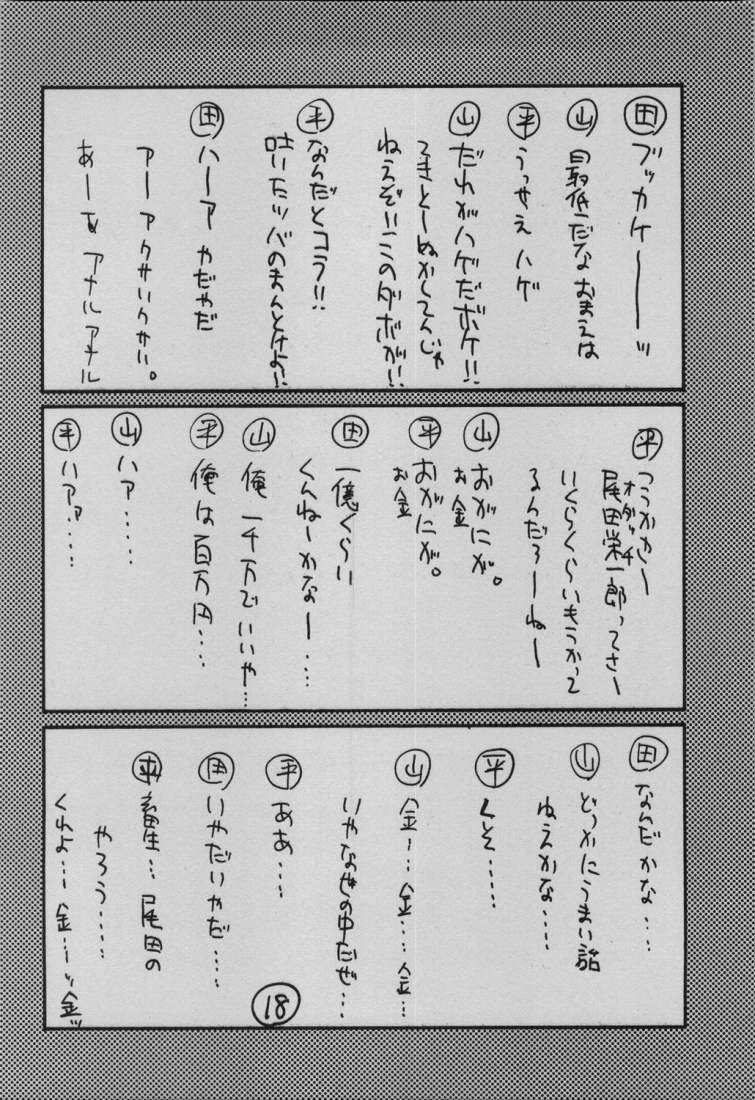 田 ブッカケーーーッ
山 最低だなおまえは
平 うっせえハゲ
山 だれがハゲだボケ!!
てきとーぬかしてんじゃ
ねえぞ!!このダボが!!
平 なんだとコラ!!
吐いたツバのまんとけよ!!
田 ハーア やだやだ
アーア クサいクサい。
あーあ アナル アナル
平 つうかさー
尾田栄一郎ってさー
オダッチ
いくらくらいもうかって
るんだろーねー
山 おがにが。
お金
平 おがにが。
お金
田 一億くらい
くんねーかなー……
山 俺 一千万でいいや…
平 俺は百万円……
山 ハァ……
平 ハァァ……
田 なんだかな……
山 どっかにうまい話
ねえかな……
平 くそ……
山 金…金…金…
いやなせの中だぜ…
平 ああ……
田 いやだいやだ……
畜生… 尾田の
やろう……
くれよ…金…ッ金ッ
18